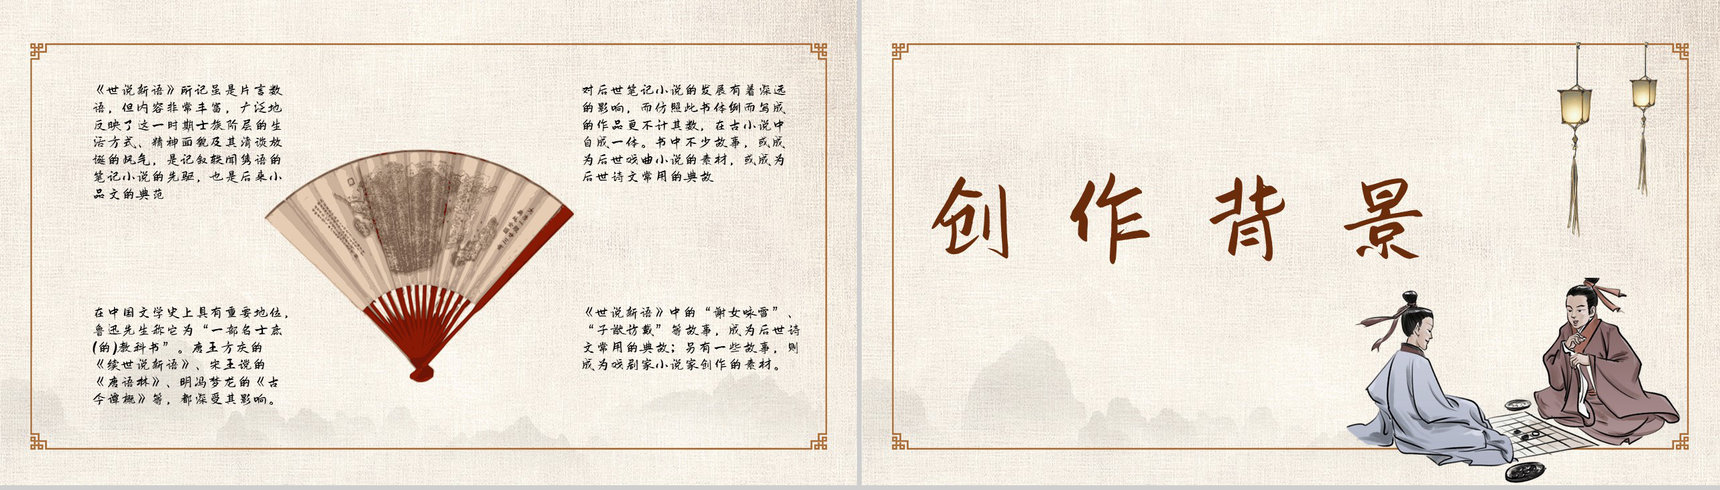 《世说新语》所记虽是片言数
语，但内容非常丰富，广泛地
反映了这一时期士族阶层的生
活方式、精神面貌及其清谈放
诞的风气，是记叙轶闻隽语的
笔记小说的先驱，也是后来小
品文的典范
对后世笔记小说的发展有着深远
的影响，而仿照此书体例而写成
的作品更不计其数，在古小说中
自成一体。书中不少故事，或成
为后世戏曲小说的素材，或成为
后世诗文常用的典故
在中国文学史上具有重要地位，
鲁迅先生称它为“一部名士底
(的)教科书”。唐王方庆的
《续世说新语》、宋王谠的
《唐语林》、明冯梦龙的《古
今谭概》等，都深受其影响。
《世说新语》中的“谢女咏雪”、
“子猷访戴”等故事，成为后世诗
文常用的典故；另有一些故事，则
成为戏剧家小说家创作的素材。
创作背景